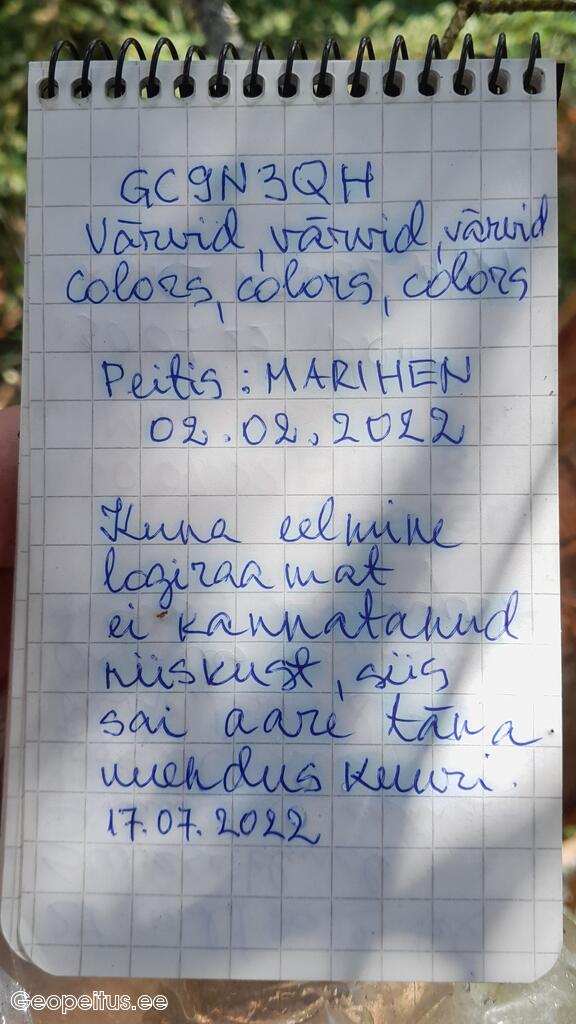 GC9N3QH
Värvid, värvid, värvid
colors, colors, colors
Peitis: MARIHEN
02.02.2022
Kuna eelmine
logiraamat
ei kannatanud
niiskust, siis
sai aare täna
uuenduskuuri.
17.07.2022
Geopeitus.ee